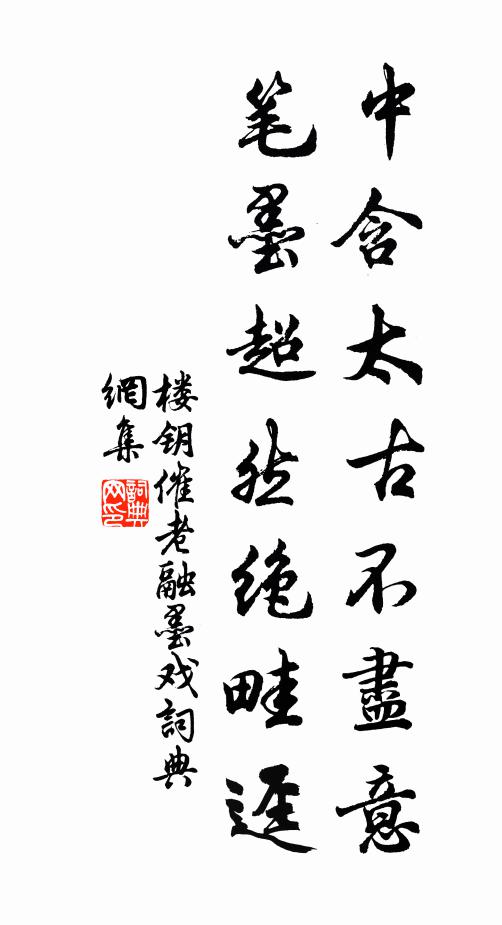 中含太古不盡意
笔墨超然绝畦逕
楼钥催老融墨戏詞典
網集
詞典
网印